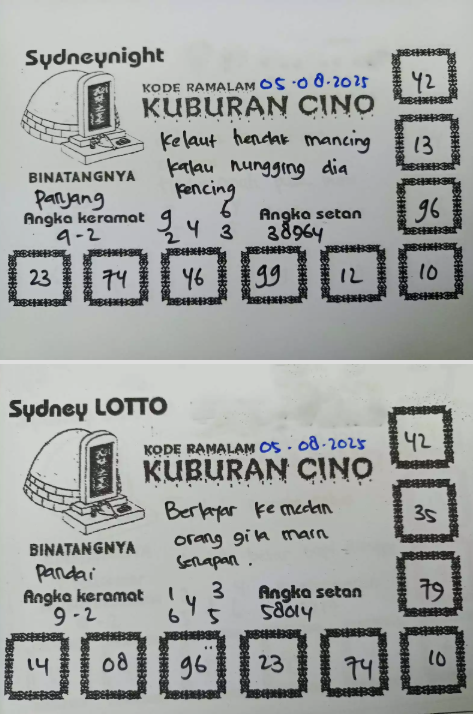 Sydneynight
KODE RAMALAM 05-08-2025
KUBURAN CINO
Kelaut hendak mancing
kalau nungging dia
kencing
BINATANGNYA
Panjang
Angka keramat
9-2
9 6
4
2 3
Angka setan
38964
42
13
96
23 74 46 99 12 10
Sydney LOTTO
KODE RAMALAM 05-08-2025
KUBURAN CINO
Berlayar ke medan
orang gila main
senapan.
BINATANGNYA
Pandai
Angka keramat
9-2
1 3
4
6 5
Angka setan
58014
42
35
79
14 08 96 23 74 10